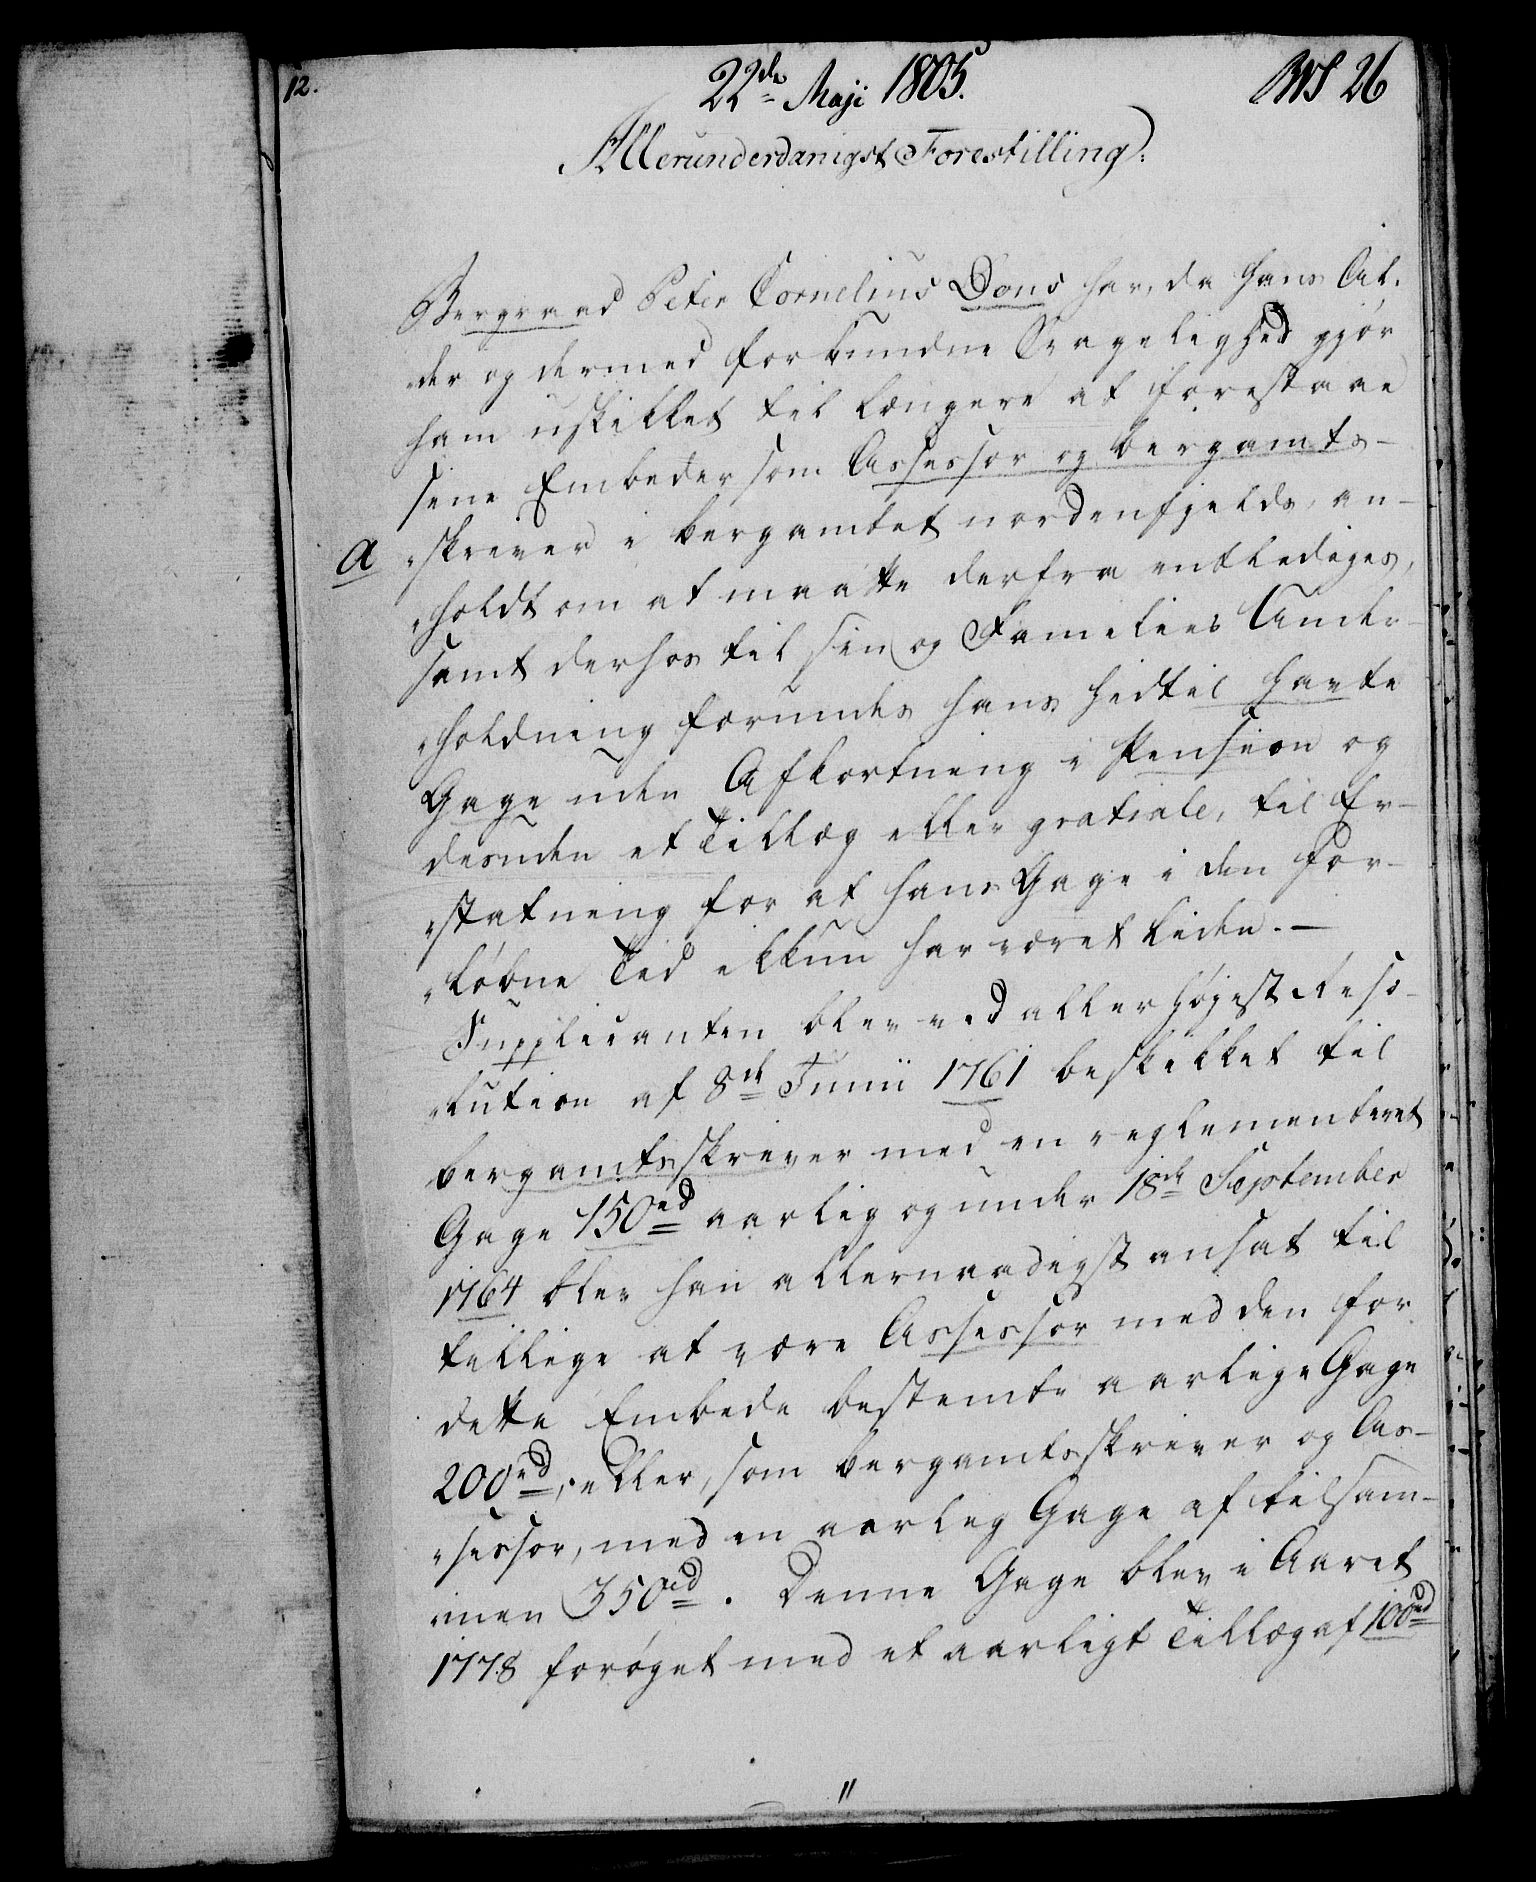 12.
22de Maji 1805.
26
Allerunderdanigst Forestilling:
Bergraad Peter Cornelius Dons har, da hans Al-
der og dermed forbundne Svagelighed gjør
ham uskikket til længere at forestaae
sine Embeder som Assessor og bergamts-
A
skriver i bergamtet nordenfjelds, an-
holdt om at maatte derfra entlediges,
samt derhos til sin og Families Under-
holdning forundes hans hidtil havte
Gage uden Afkortning i Pension og
desuden et Tillæg eller gratiale, til Er-
statning for at hans Gage i den for-
løbne Tid ikkun har været liden. —
Supplicanten blev ved allerhøjest Reso-
lution af 8de Junii 1761 beskikket til
bergamtsskriver med en reglementeret
Gage 150rd aarlig og under 18de September
1764 blev han allernaadigst ansat til
tillige at være Assessor med den for
dette Embede bestemte aarlige Gage
200rd; eller, som bergamtsskriver og As-
sessor, med en aarlig Gage af tilsam-
men 350rd. Denne Gage blev i Aaret
1778 forøget med et aarligt Tillæg af 100rd